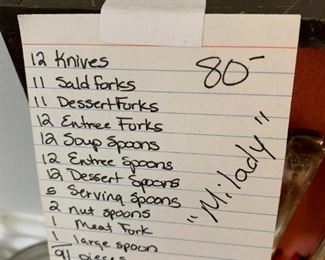 12 Knives
11 Sald forks
11 Dessert Forks
12 Entree Forks
12 Soup Spoons
12 Entree Spoons
12 Dessert Spoons
5 Serving Spoons
2 nut spoons
1 Meat Fork
1 large spoon
91 pieces
80-
"Milady"